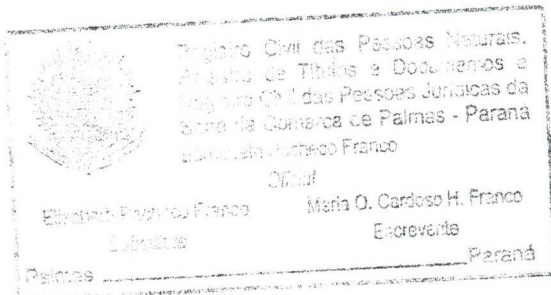 Registro Civil das Pessoas Naturais,
de Títulos e Documentos e
Registro Civil das Pessoas Jurídicas da
Sede da Comarca de Palmas - Paraná
Pacheco Franco
Oficial
Elizabeth Pacheco Franco
Maria O. Cardoso H. Franco
Substituta
Escrevente
Palmas
Paraná